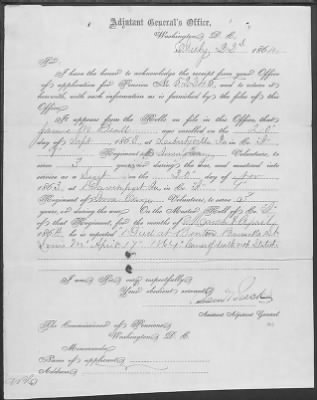 Adjutant General's Office,
Washington, D. C.
July 22d, 1864.
Sir:
I have the honor to acknowledge the receipt from your Office
of application for Pension No. and to return it
herewith, with such information as is furnished by the files of this
Office.
It appears from the Rolls on file in this Office, that
James was enrolled on the
day of Sept, 1863, at in Co. F
Regiment of Volunteers, to
serve 3 years, or during the war, and mustered into
service as a Sergt on the 30" day of Nov
1863, at Davenport Ia, in Co. F
Regiment of Iowa Volunteers, to serve 3
years, or during the war. On the Muster Roll of Co. F
of that Regiment, for the months of March & April,
1864, he is reported "Died at Benton Barracks St.
Louis Mo. April 17" 1864," cause of death not stated.
I am, Sir, very respectfully,
Your obedient servant,
Assistant Adjutant General.
The Commissioner of Pensions,
Washington, D. C.
Memoranda:
Name of applicant
Address